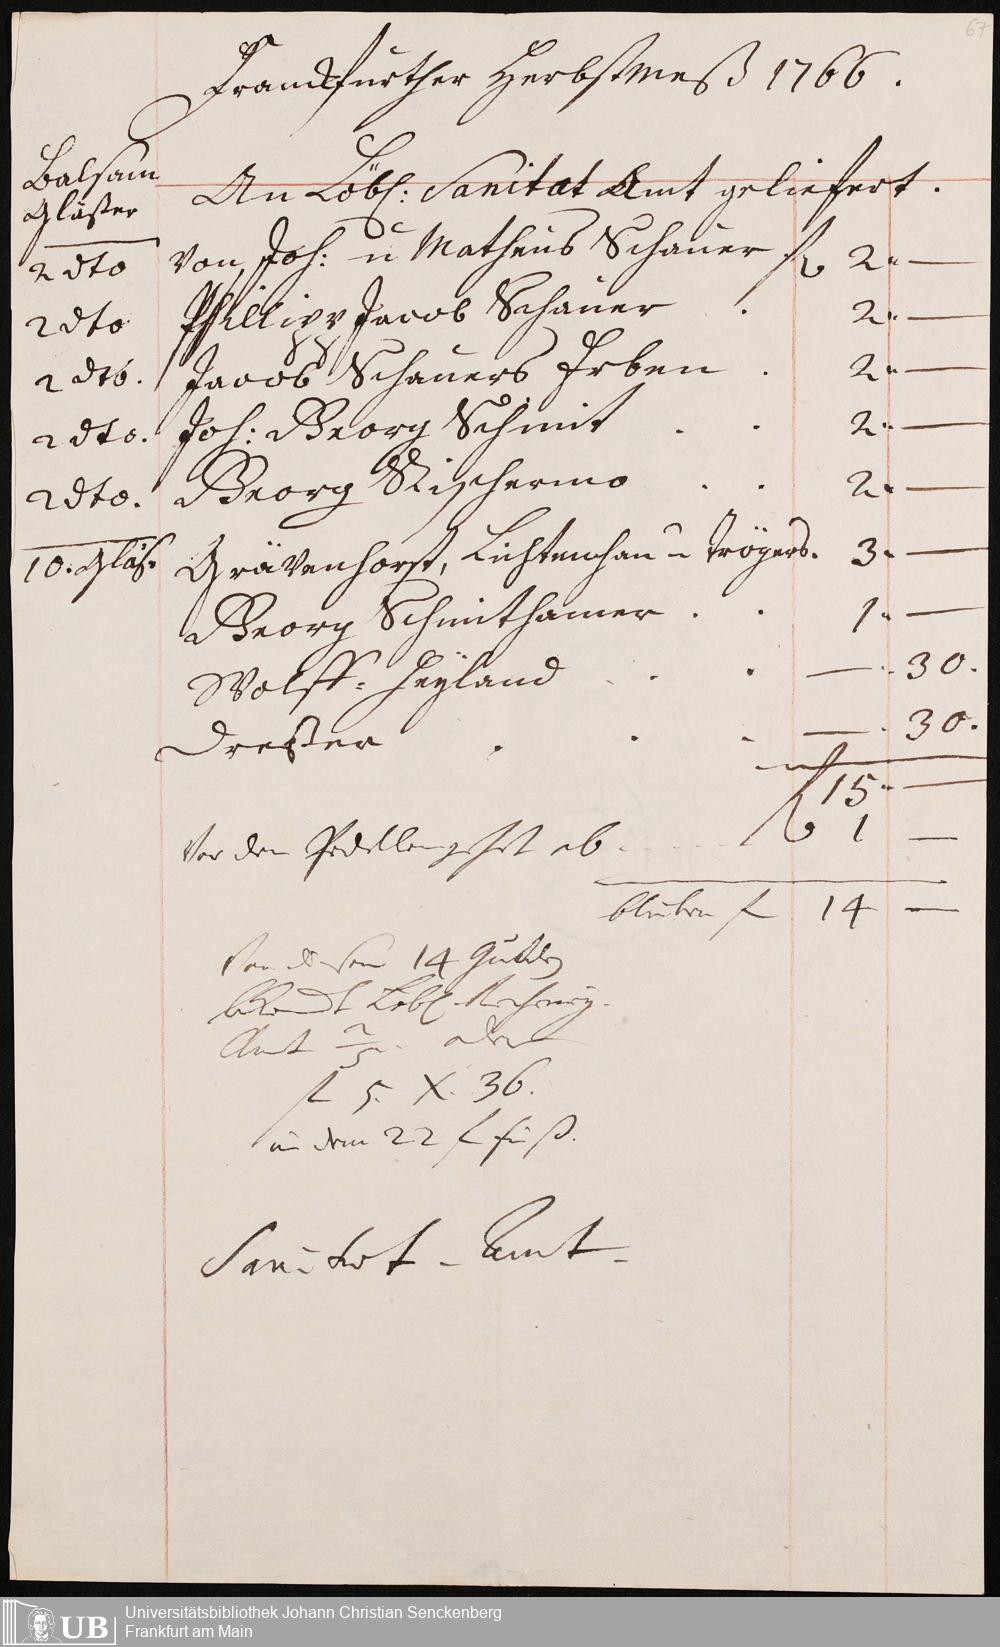 67
Franckfurther Herbstmeß 1766.
Balsam
Gläßer
An Löbl: Sanitat Amt geliefert.
2 dto von Joh: u Matheus Schauer f 2. —
2 dto Phillipp Jacob Schauer . 2. —
2 dto. Jacob Schauers Erben . 2. —
2 dto. Joh: Georg Schmit . . 2. —
2 dto. Georg . . 2. —
10. Gläß. Grävenhorst, Lichtenhan u Trögers. 3. —
Georg Schmithamer . . 1. —
Wolff= Heyland . . . — . 30.
Dreßer . . . — . 30.
f 15. —
Vor den Pedellen gehet ab . . . f 1 —
bleiben f 14 —
Von diesen 14 Gulden
Löbl. Rechney-
Amt 2/5. oder
f 5. X. 36.
in dem 22 f fuß.
Sanitat-Amt.
UB Universitätsbibliothek Johann Christian Senckenberg
Frankfurt am Main